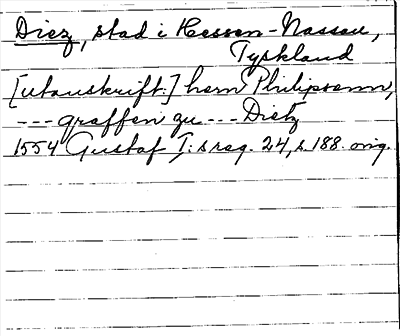 Diez, stad i Hessen-Nassau,
Tyskland
[utanskrift:] hern Philipsenn,
--- graffen zu --- Dietz
1554 Gustaf I:s reg. 24, s. 188. orig.